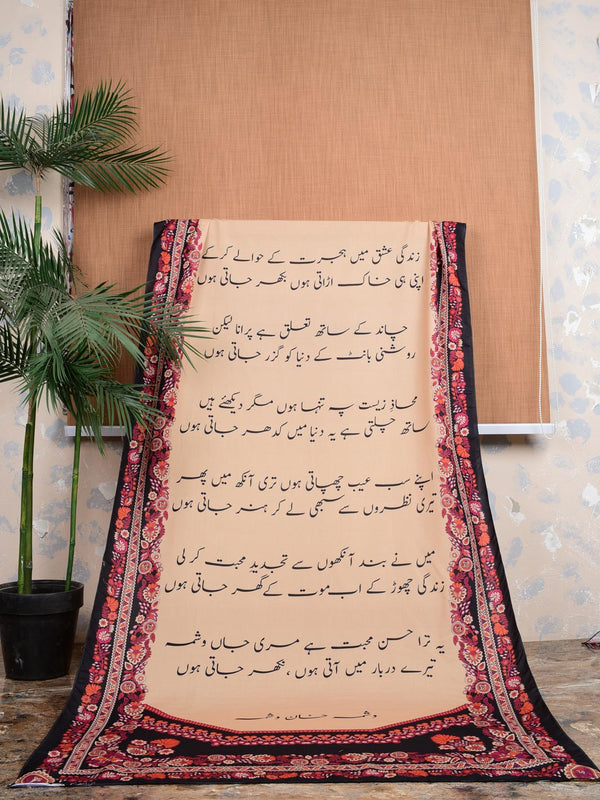 زندگی عشق میں ہجرت کے حوالے کرکے
اپنی ہی خاک اڑاتی ہوں بکھر جاتی ہوں
چاند کے ساتھ تعلق ہے پرانا لیکن
روشنی بانٹ کے دنیا کو گزر جاتی ہوں
محاذِ زیست پہ تنہا ہوں مگر دیکھئے ہیں
ساتھ چلتی ہے یہ دنیا میں کدھر جاتی ہوں
اپنے سب عیب چھپاتی ہوں تری آنکھ میں پھر
تیری نظروں سے سبھی لے کر ہنر جاتی ہوں
میں نے بند آنکھوں سے تجدید محبت کر لی
زندگی چھوڑ کے اب موت کے گھر جاتی ہوں
یہ ترا حسن محبت ہے مری جاں وشمہ
تیرے دربار میں آتی ہوں ، نکھر جاتی ہوں
وشمہ خان وشمہ